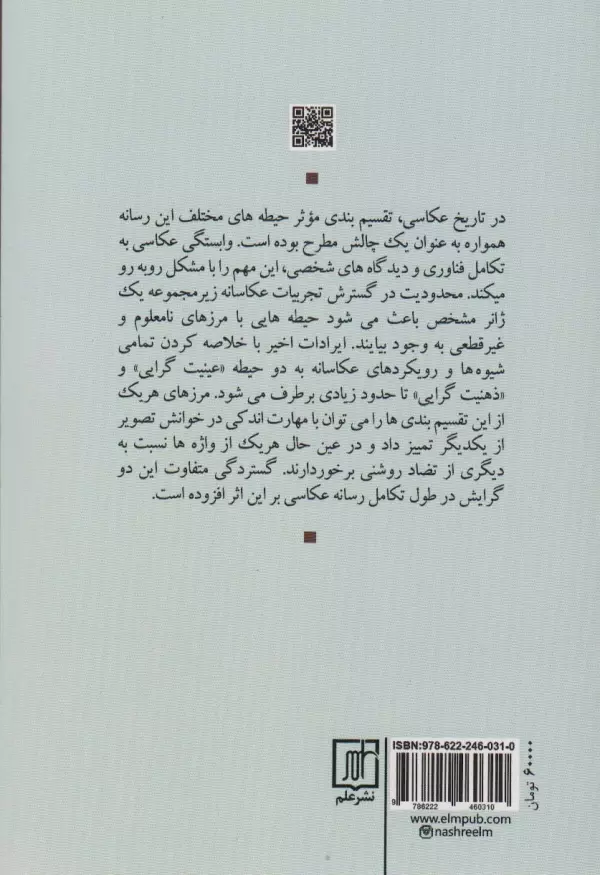 در تاریخ عکاسی، تقسیم بندی مؤثر حیطه های مختلف این رسانه
همواره به عنوان یک چالش مطرح بوده است. وابستگی عکاسی به
تکامل فناوری و دیدگاه های شخصی، این مهم را با مشکل روبه رو
میکند. محدودیت در گسترش تجربیات عکاسانه زیرمجموعه یک
ژانر مشخص باعث می شود حیطه هایی با مرزهای نامعلوم و
غیرقطعی به وجود بیایند. ایرادات اخیر با خلاصه کردن تمامی
شیوه ها و رویکردهای عکاسانه به دو حیطه «عینیت گرایی» و
«ذهنیت گرایی» تا حدود زیادی برطرف می شود. مرزهای هریک
از این تقسیم بندی ها را می توان با مهارت اندکی در خوانش تصویر
از یکدیگر تمییز داد و در عین حال هریک از واژه ها نسبت به
دیگری از تضاد روشنی برخوردارند. گستردگی متفاوت این دو
گرایش در طول تکامل رسانه عکاسی بر این اثر افزوده است.
علم
نشر علم
ISBN:978-622-246-031-0
9 786222 460310
www.elmpub.com
nashreelm
۶۰۰۰۰ تومان